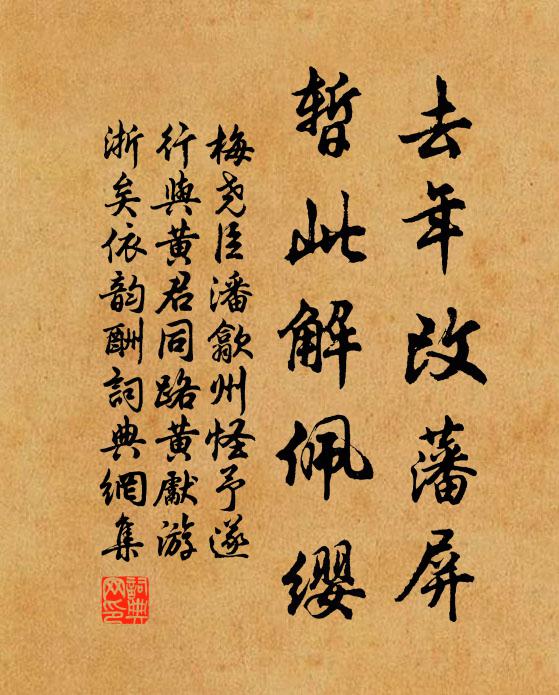 去年改藩屏
暂此解佩缨
梅尧臣潘歙州怪予遂
行与黄君同路黄献游
浙矣依韵酬词典网集